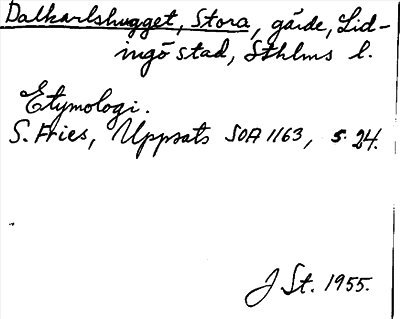 Dalkarlshugget, Stora, gärde, Lid-
ingö stad, Sthlms l.
Etymologi.
S. Fries, Uppsats SOA 1163, s. 24.
J St. 1955.